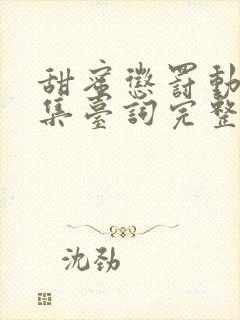 甜蜜懲罰動
集臺詞完整
沈劲